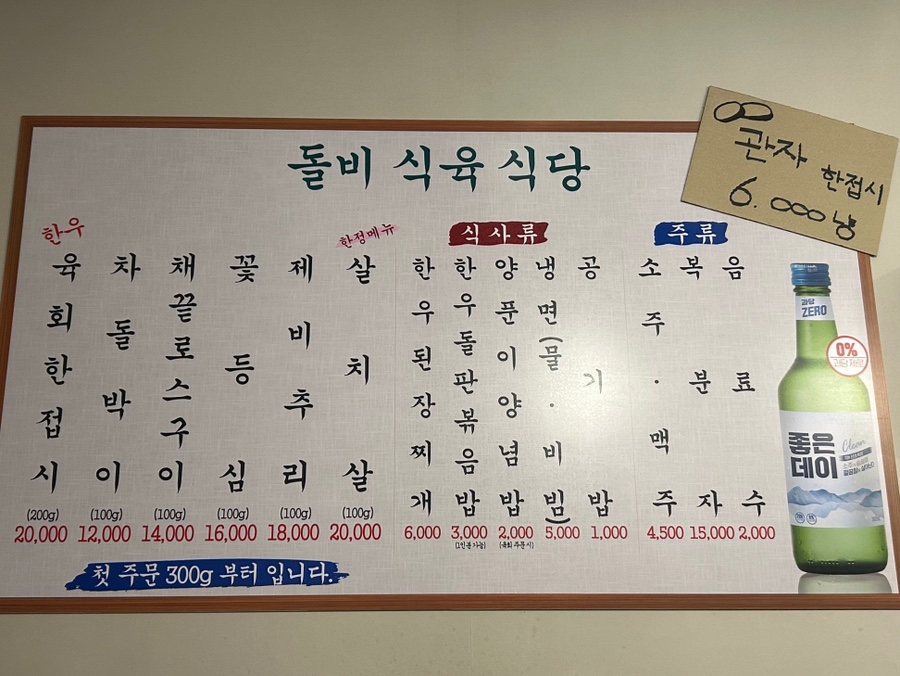 돌비 식육 식당
관자 한접시
6.000냥
한우
육회한접시
(200g)
20,000
차돌박이
(100g)
12,000
채끝로스구이
(100g)
14,000
꽃등심
(100g)
16,000
제비추리
(100g)
18,000
한정메뉴
살치살
(100g)
20,000
첫 주문 300g 부터 입니다.
식사류
한우된장찌개
6,000
한우돌판볶음밥
3,000
(1인분가능)
양푼이양념밥
2,000
(육회 주문시)
냉면(물·비빔)
5,000
공기밥
1,000
주류
소주·맥주
4,500
복분자
15,000
음료수
2,000
과당
ZERO
0%
과당 제로
좋은
데이
Clean